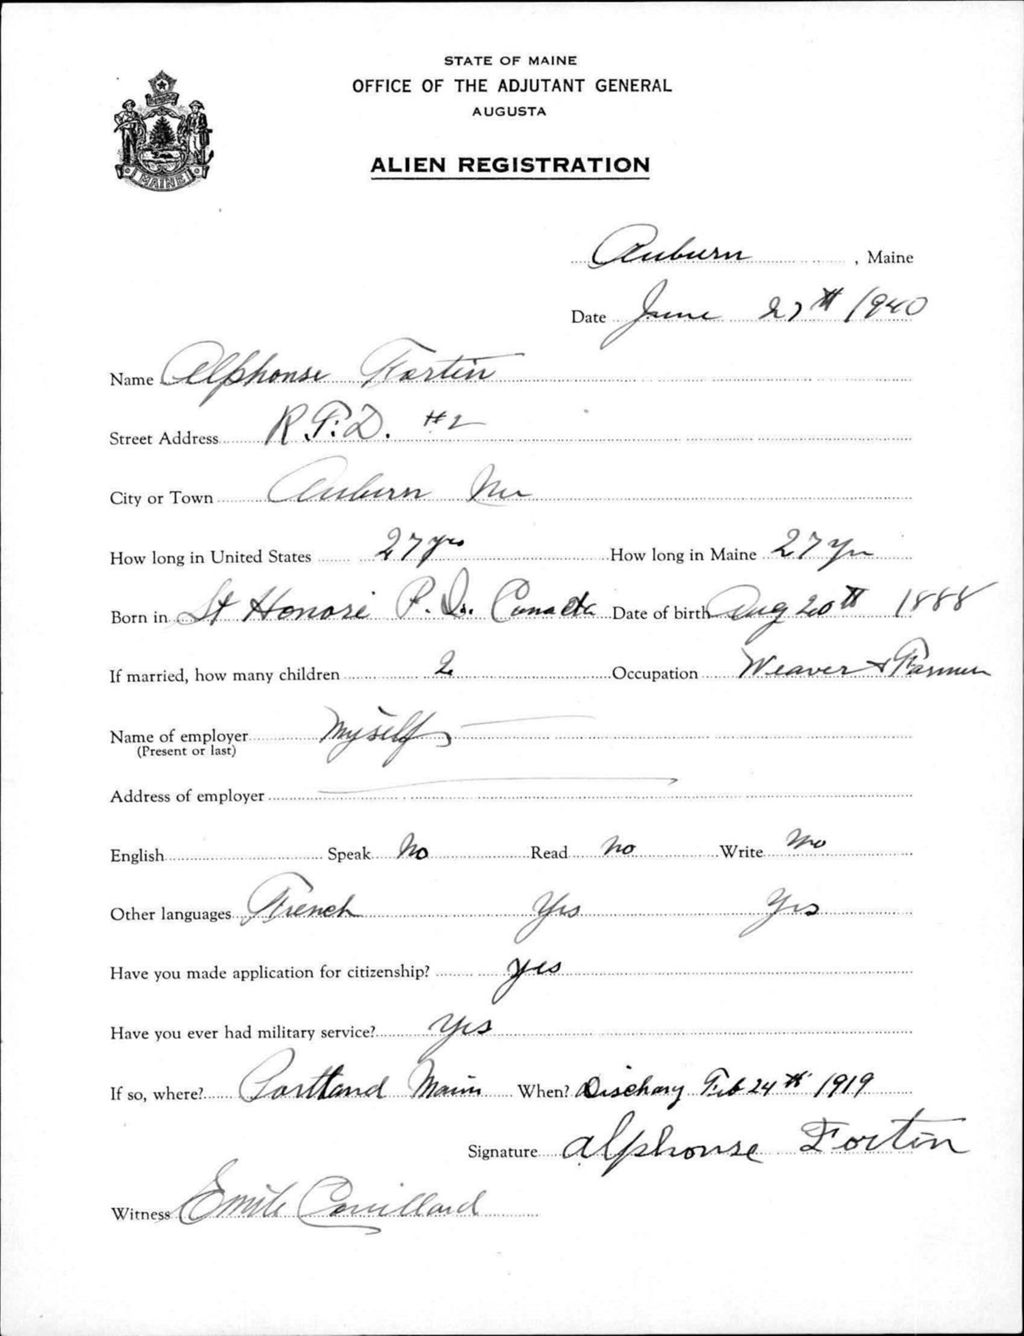 STATE OF MAINE
OFFICE OF THE ADJUTANT GENERAL
AUGUSTA
ALIEN REGISTRATION
MAINE
Auburn, Maine
Date June 27th 1940
Name Alphonse Fortin
Street Address R.F.D. #2
City or Town Auburn Me
How long in United States 27 yrs How long in Maine 27 yrs
Born in St Honoré P. Q. Canada Date of birth Aug 20th 1888
If married, how many children 2 Occupation Weaver & Farmer
Name of employer Myself
(Present or last)
Address of employer
English Speak No Read No Write No
Other languages French Yes Yes
Have you made application for citizenship? yes
Have you ever had military service? Yes
If so, where? Portland Maine When? Discharg Feb 24th 1919
Signature Alphonse Fortin
Witness Emile Couillard